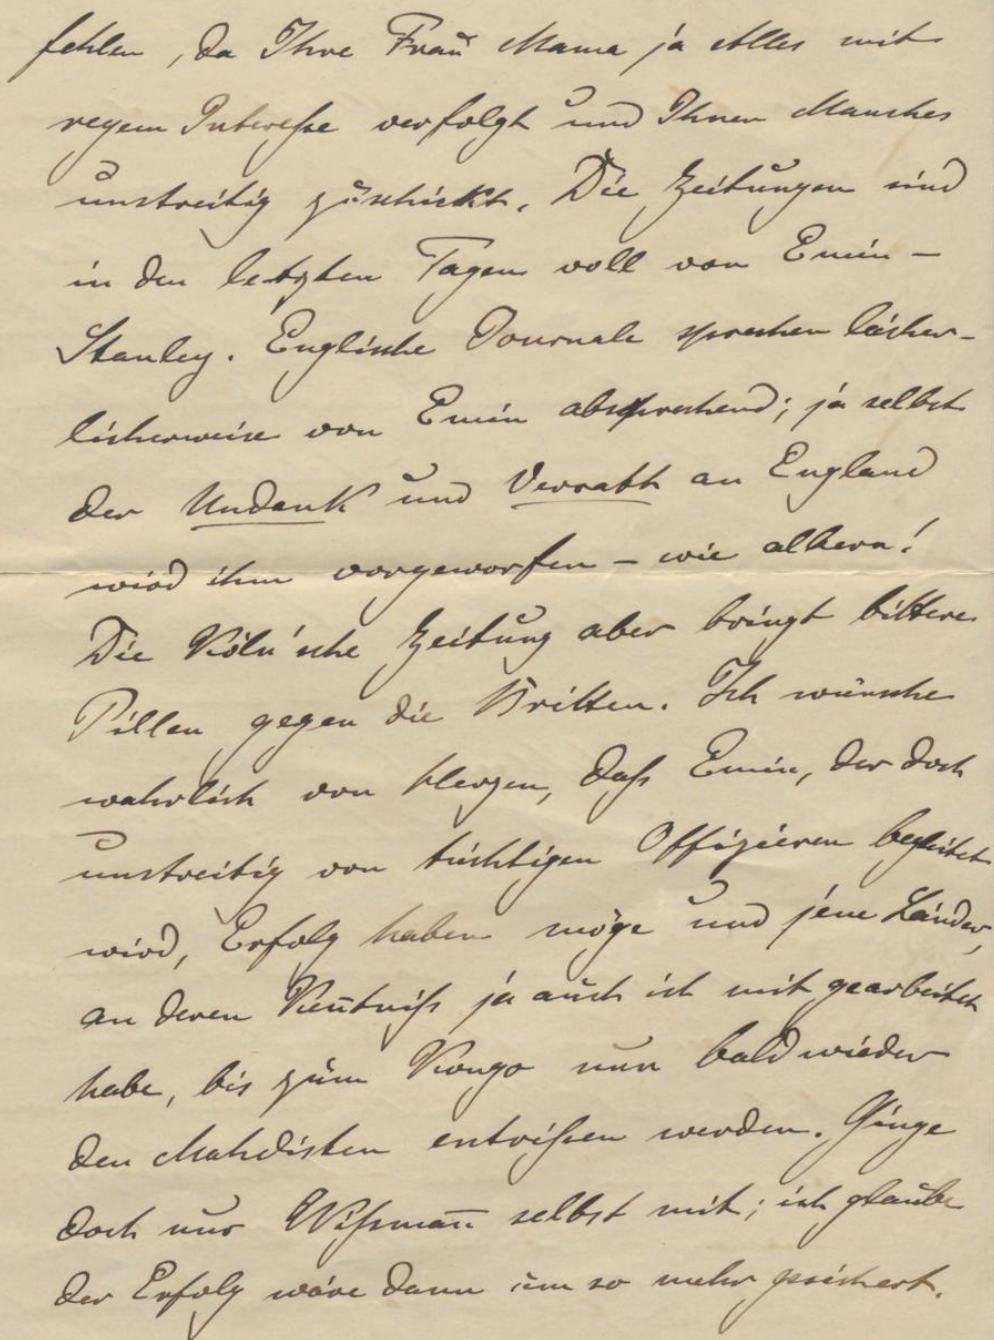 fehlen, da Ihre Frau Mama ja Alles mit
regem Interesse verfolgt und Ihnen Manches
unstreitig zuschickt. Die Zeitungen sind
in den letzten Tagen voll von Emin -
Stanley. Englische Journale sprechen lächer-
licherweise von Emin absprechend; ja selbst
der Undank und Verrath an England
wird ihm vorgeworfen - wie albern!
Die Köln'sche Zeitung aber bringt bittere
Pillen gegen die Britten. Ich wünsche
wahrlich von Herzen, dass Emin, der doch
unstreitig von tüchtigen Offizieren begleitet
wird, Erfolg haben möge und jene Länder,
an deren Kenntniss ja auch ich mit gearbeitet
habe, bis zum Kongo nun bald wieder
den Mahdisten entrissen werden. Ginge
doch nur Wissmann selbst mit; ich glaube
der Erfolg wäre dann um so mehr gesichert.